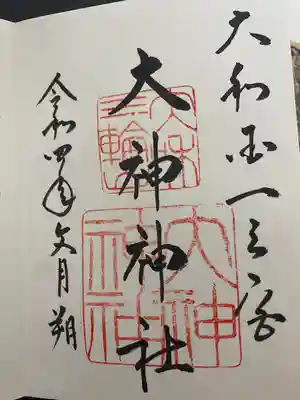 大和国一之宮
大神神社
令和四年文月朔
大和
三輪
大神
神社